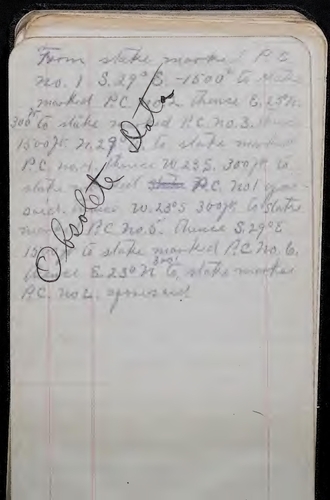 From stake marked P.C.
No. 1 S. 29° E. - 1500 ft to stake
marked P.C. No 2 thence E. 23° N.
300 ft to stake marked P.C. No. 3. thence
1500 ft N. 29° to stake marked
P.C. No. 4 thence W 23 S. 300 ft to
stake marked P.C. No 1
said. thence W. 23° S 300 ft to stake
marked P.C. No. 5. Thence S. 29° E
to stake marked P.C. No. 6.
thence E. 23° N 300' to stake marked
P.C. No 2.
Obsolete Data